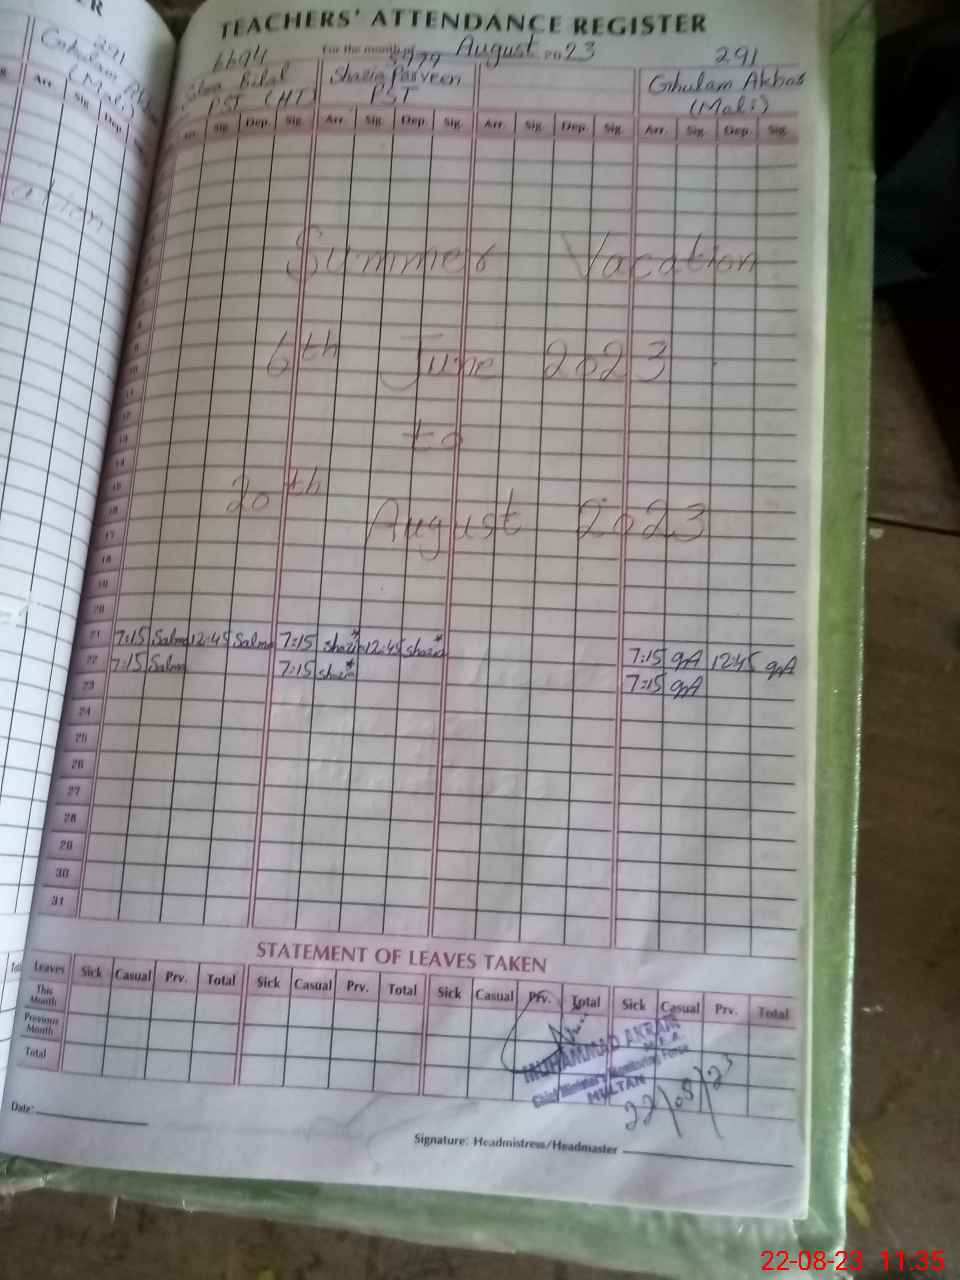 TEACHERS' ATTENDANCE REGISTER
For the month of August 2023
6694 5979 291
Salma Bilal Shazia Parveen Ghulam Akbar
PST (HT) PST (Mali)
Arr. Sig. Dep. Sig. Arr. Sig. Dep. Sig. Arr. Sig. Dep. Sig. Arr. Sig. Dep. Sig.
Summer Vacation
6th June 2023
to
20th August 2023
9
10
11
12
13
14
15
16
17
18
19
20
21 7:15 Salma 12:45 Salma 7:15 Shazia 12:45 Shazia 7:15 gA 12:45 gA
22 7:15 Salma 7:15 Shazia 7:15 gA
23
24
25
26
27
28
29
30
31
STATEMENT OF LEAVES TAKEN
Leaves Sick Casual Prv. Total Sick Casual Prv. Total Sick Casual Prv. Total Sick Casual Prv. Total
This Month
Previous Month
Total
MUHAMMAD AKRAM
M.E.A.
Chief Minister's Monitoring Force
MULTAN
22/08/23
Date:
Signature: Headmistress/Headmaster
291
Ghulam
(Mali)
Arr. Sig. Dep.
ation
22-08-23 11:35